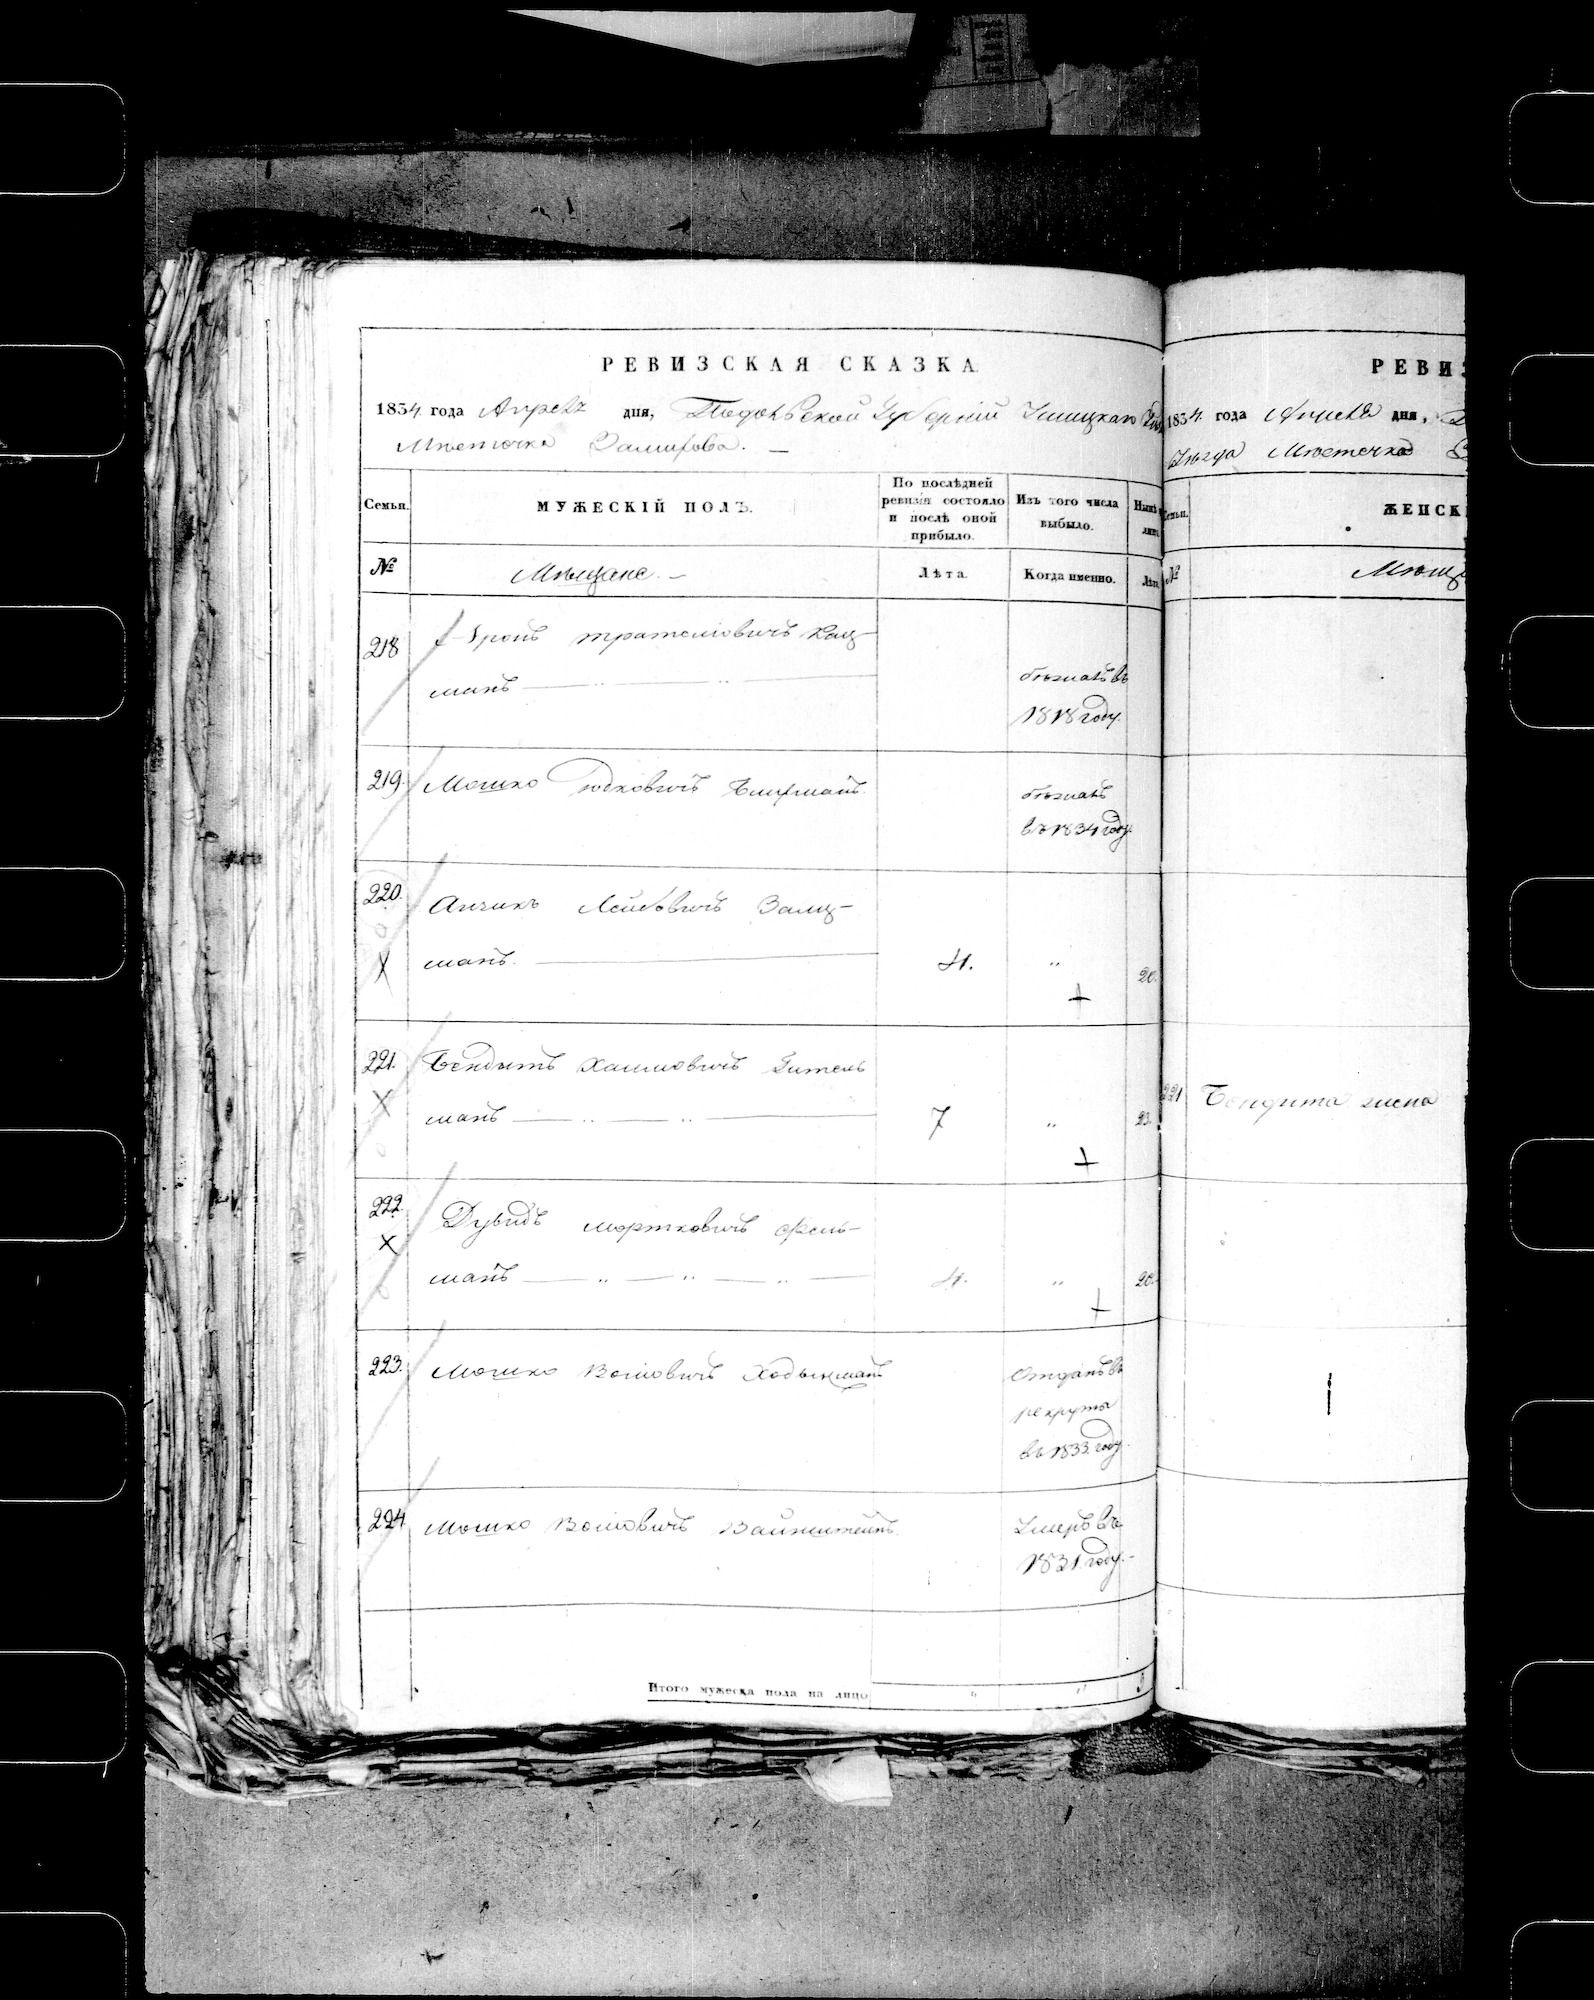 РЕВИЗСКАЯ СКАЗКА.
1834 года Апреля дня, Подольской Губерніи Ушицкаго
Мѣстечка Замихова.
Семьи.
МУЖЕСКІЙ ПОЛЪ.
По послѣдней
ревизіи состояло
и послѣ оной
прибыло.
Изъ того числа
выбыло.
№
Мѣщане.
Лѣта.
Когда именно.
218
манъ
бѣжалъ въ
1818 году.
219.
Мошко Юдковичъ
бѣжалъ
въ 1834 году.
220.
Лейбовичъ Залц-
манъ.
4.
"
20.
221.
Бендытъ Хаимовичъ Гитель
манъ
7
"
23.
222.
Дувидъ Мортковичъ Фель-
манъ
4.
"
20.
223.
Мошко
Отданъ въ
рекруты
въ 1833 году.
224
Мошко Вайнштейнъ.
Умеръ въ
1831 году.
Итого мужеска пола на лицо
"
"
3
РЕВИЗ
1834. года Апреля дня,
Уѣзда Мѣстечка
ЖЕНСК
№
Мѣщ
221
Бендита жена